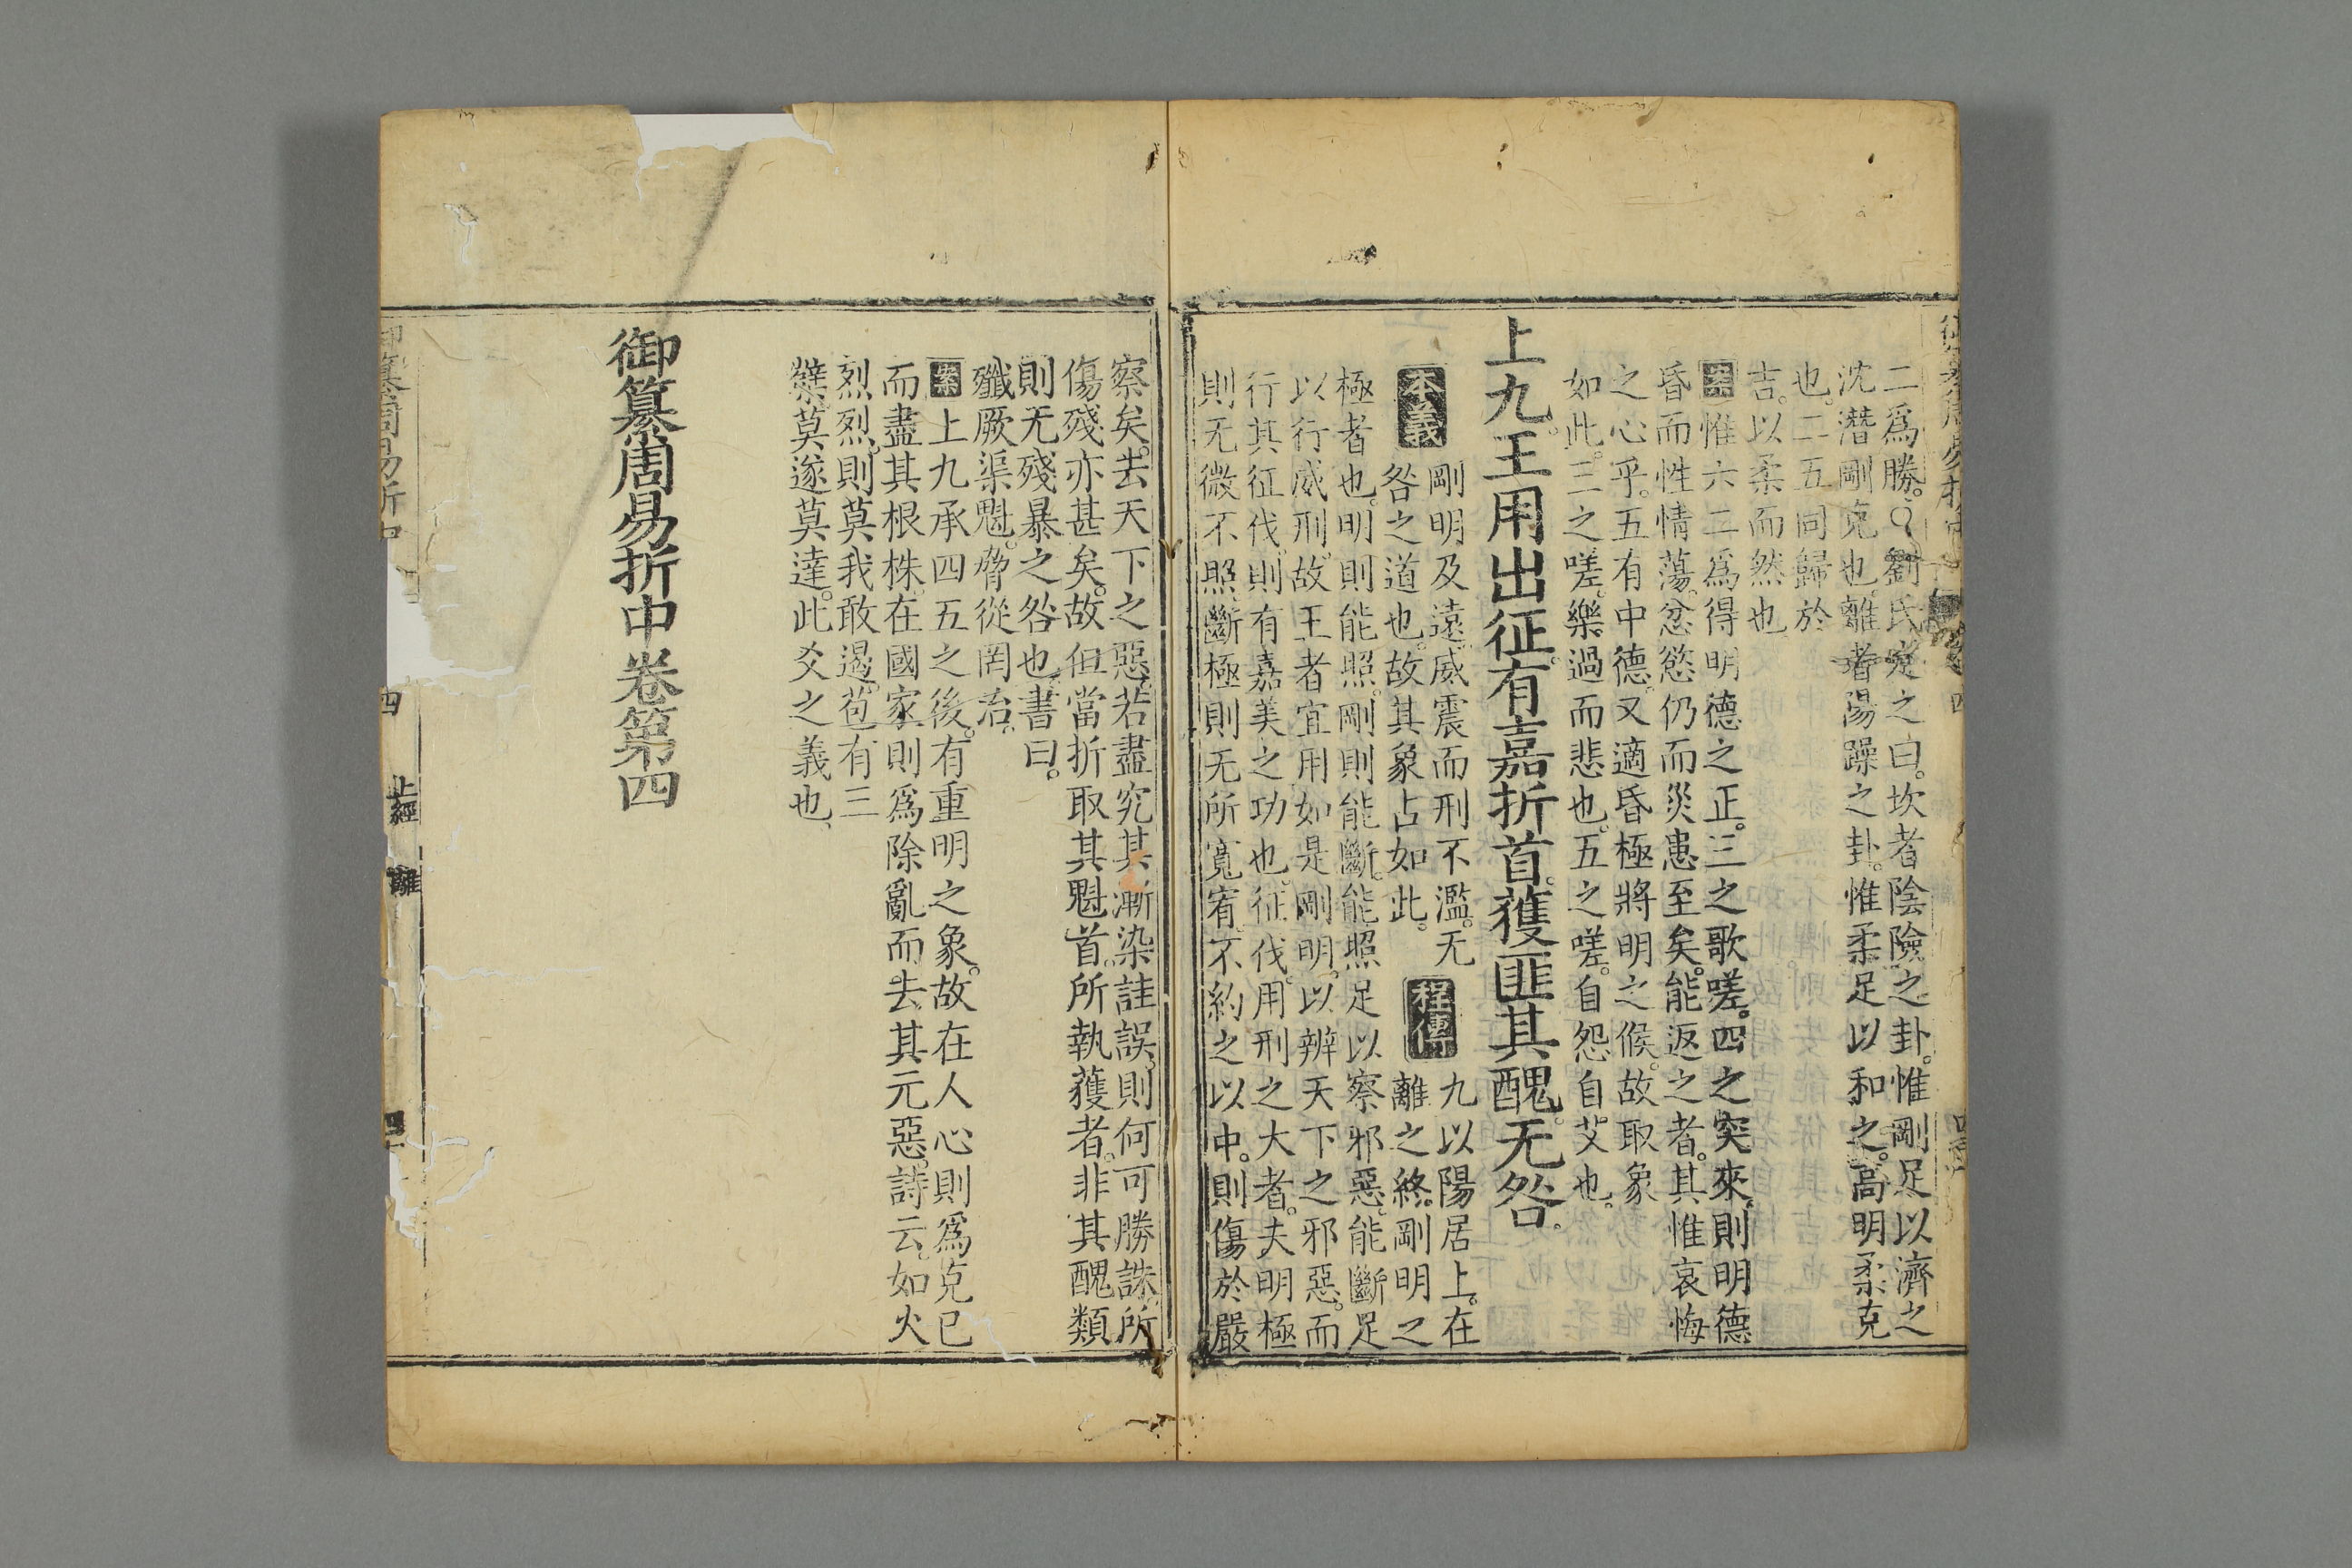 二爲勝○劉氏定之曰坎者陰險之卦惟剛足以濟之
沈潛剛克也離者陽躁之卦惟柔足以和之高明柔克
也二五同歸於
吉以柔而然也
案惟六二爲得明德之正三之歌嗟四之突來則明德
昏而性情蕩忿慾仍而災患至矣能返之者其惟哀悔
之心乎五有中德又適昏極將明之候故取象
如此三之嗟樂過而悲也五之嗟自怨自艾也
上九王用出征有嘉折首獲匪其醜无咎
本義 剛明及遠威震而刑不濫无
咎之道也故其象占如此 程傳 九以陽居上在
離之終剛明之
極者也明則能照剛則能斷能照足以察邪惡能斷足
以行威刑故王者宜用如是剛明以辨天下之邪惡而
行其征伐則有嘉美之功也征伐用刑之大者夫明極
則无微不照斷極則无所寬宥不約之以中則傷於嚴
察矣去天下之惡若盡究其漸染詿誤則何可勝誅所
傷殘亦甚矣故但當折取其魁首所執獲者非其醜類
則无殘暴之咎也書曰
殲厥渠魁脅從罔治
案上九承四五之後有重明之象故在人心則爲克已
而盡其根株在國家則爲除亂而去其元惡詩云如火
烈烈則莫我敢遏苞有三
櫱莫遂莫達此爻之義也
御纂周易折中卷第四
御纂周易折中
四
上經
離